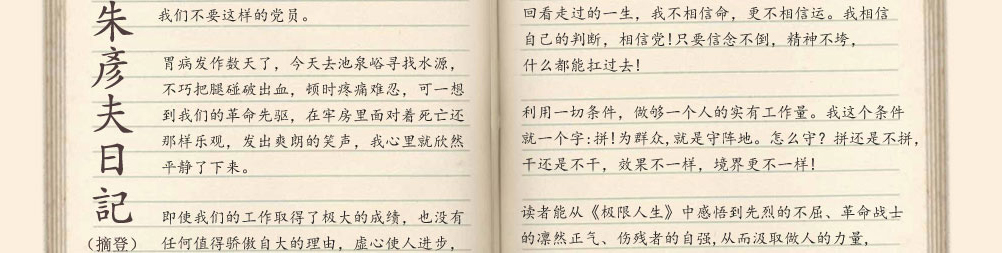 朱彦夫日記
（摘登）
我们不要这样的党员。
胃病发作数天了，今天去池泉峪寻找水源，
不巧把腿碰破出血，顿时疼痛难忍，可一想
到我们的革命先驱，在牢房里面对着死亡还
那样乐观，发出爽朗的笑声，我心里就欣然
平静了下来。
即使我们的工作取得了极大的成绩，也没有
任何值得骄傲自大的理由，虚心使人进步，
回看走过的一生，我不相信命，更不相信运。我相信
自己的判断，相信党！只要信念不倒，精神不垮，
什么都能扛过去！
利用一切条件，做够一个人的实有工作量。我这个条件
就一个字：拼！为群众，就是守阵地。怎么守？拼还是不拼，
干还是不干，效果不一样，境界更不一样！
读者能从《极限人生》中感悟到先烈的不屈、革命战士
的凛然正气、伤残者的自强，从而汲取做人的力量，